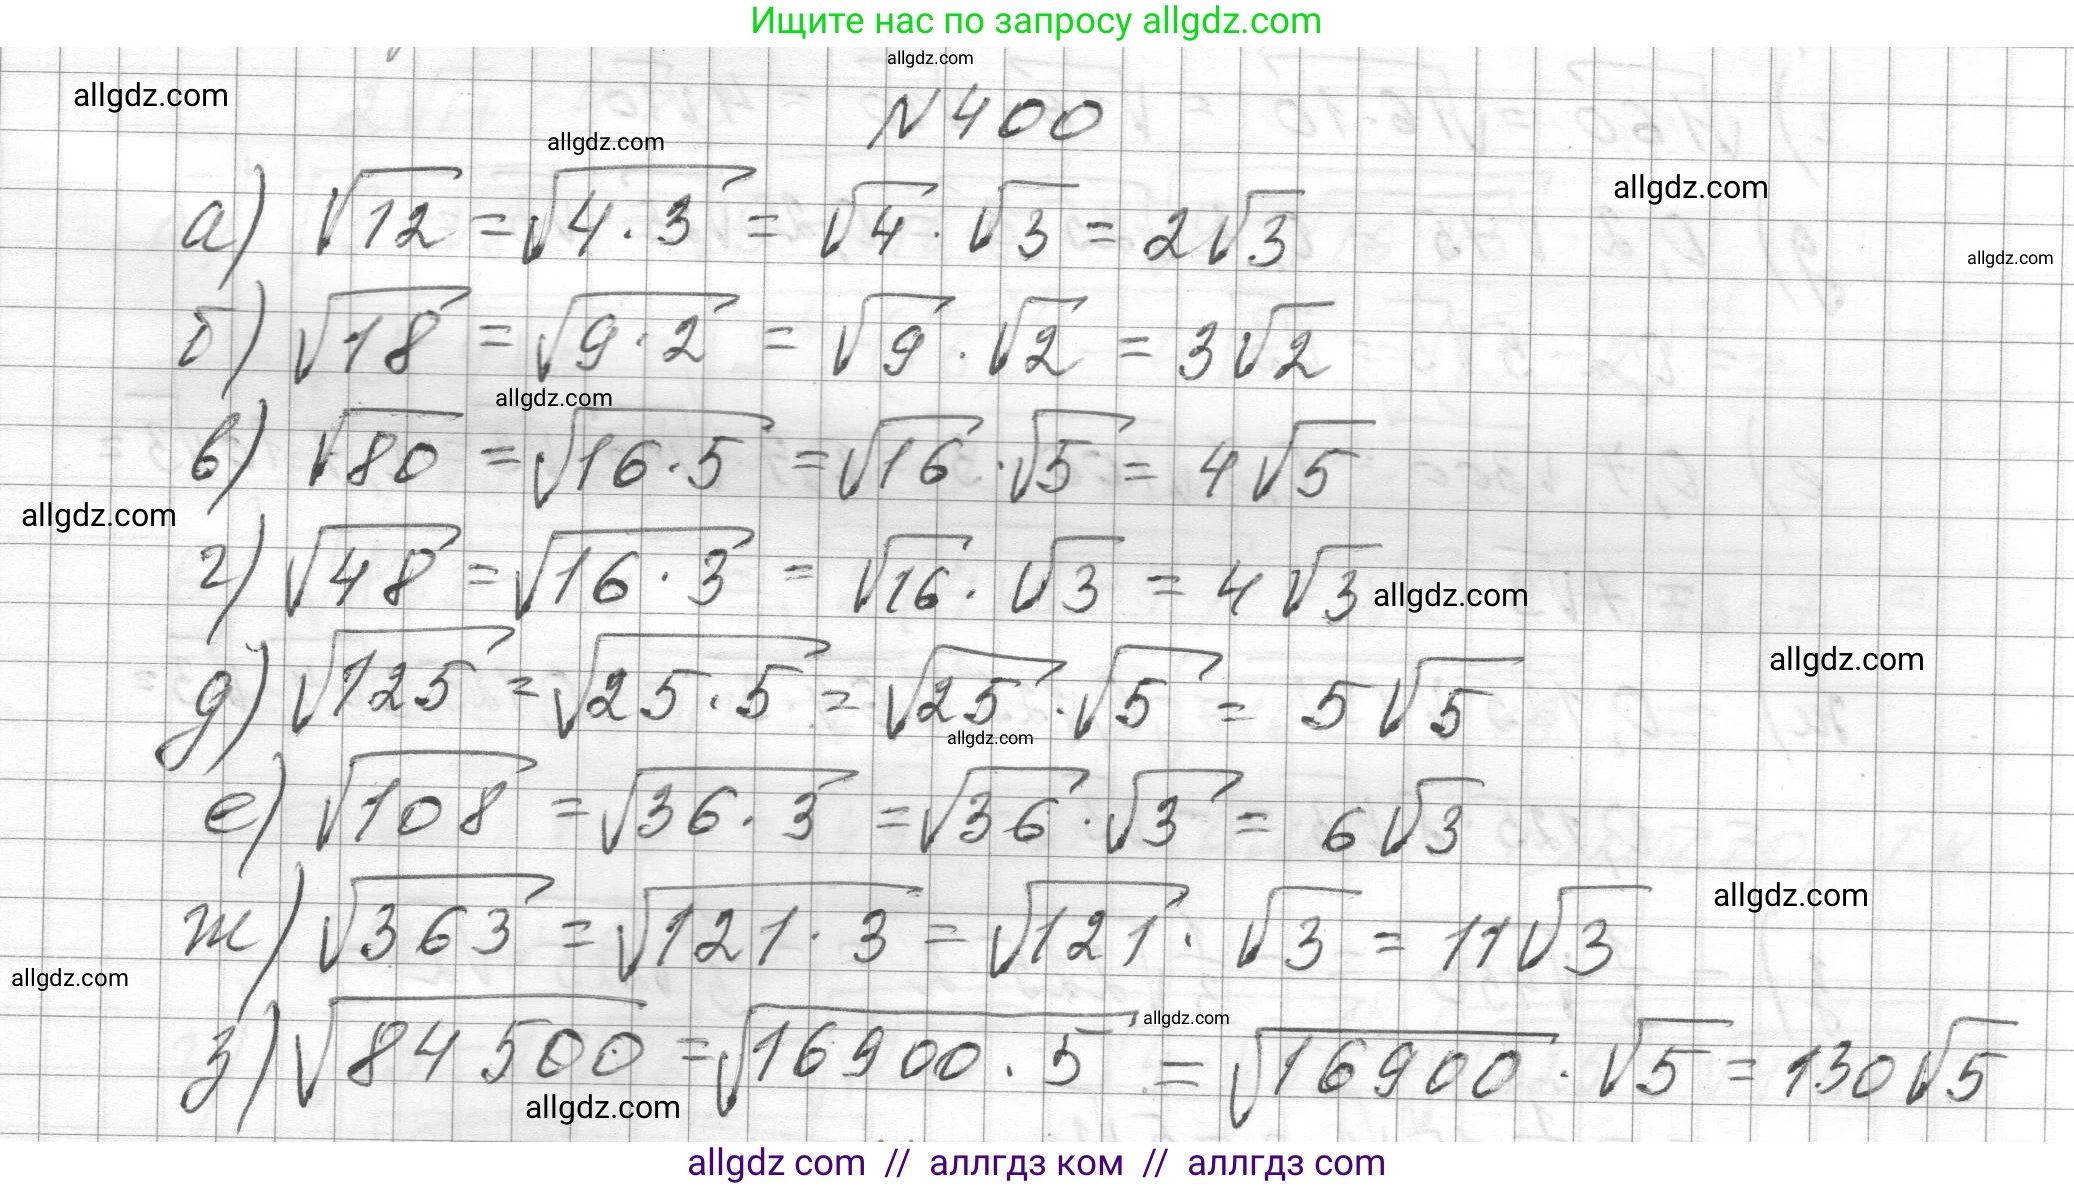 Ищите нас по запросу allgdz.com
allgdz.com
allgdz.com
№ 400
allgdz.com
allgdz.com
а) √12 = √4·3 = √4 · √3 = 2√3
allgdz.com
б) √18 = √9·2 = √9 · √2 = 3√2
allgdz.com
в) √80 = √16·5 = √16 · √5 = 4√5
allgdz.com
г) √48 = √16·3 = √16 · √3 = 4√3
allgdz.com
allgdz.com
д) √125 = √25·5 = √25 · √5 = 5√5
allgdz.com
е) √108 = √36·3 = √36 · √3 = 6√3
allgdz.com
ж) √363 = √121·3 = √121 · √3 = 11√3
allgdz.com
allgdz.com
з) √84500 = √16900·5 = √16900 · √5 = 130√5
allgdz.com
allgdz com // аллгдз ком // аллгдз com